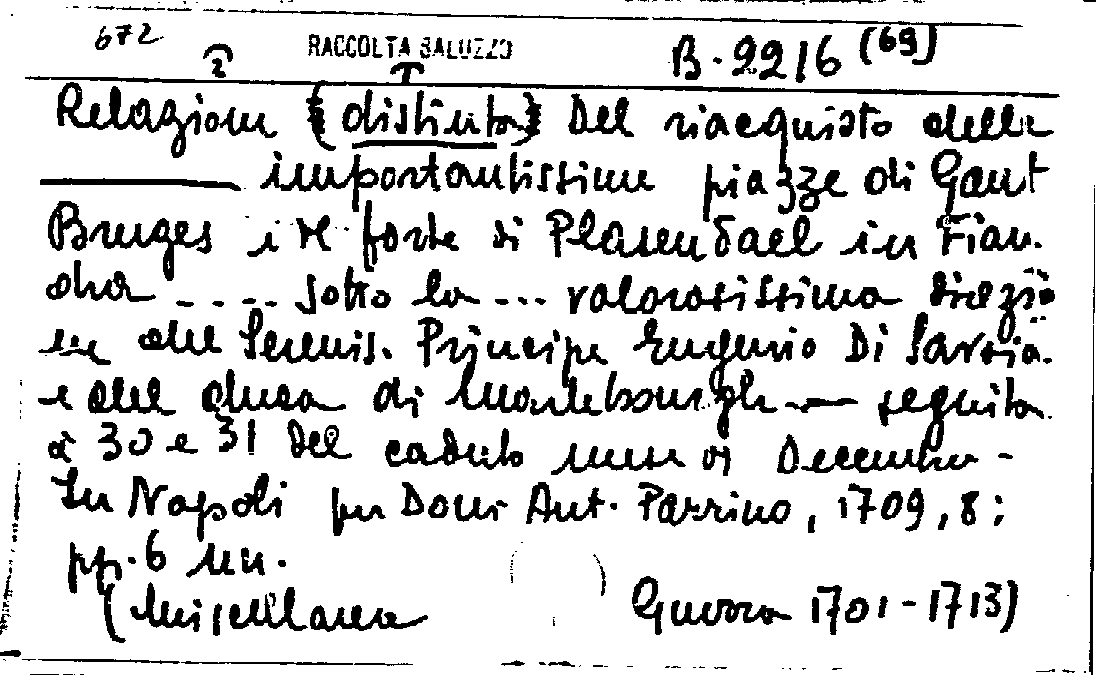 672 2 RACCOLTA SALUZZO B.2216 (69)
Relazione (distinta) Del riacquisto delle
importantissime piazze di Gant
Bruges e il forte di Plasendael in Fian.
dra .... sotto la ... valorosissima direzio
ne del Sereniss. Principe Eugenio Di Savoia.
e del duca di Marlebourgh — seguita
à 30 e 31 del caduto mese di Decembre -
In Napoli per Dom. Ant. Parrino, 1709, 8;
pp. 6 nn.
(Miscellanea Guerra 1701-1713)